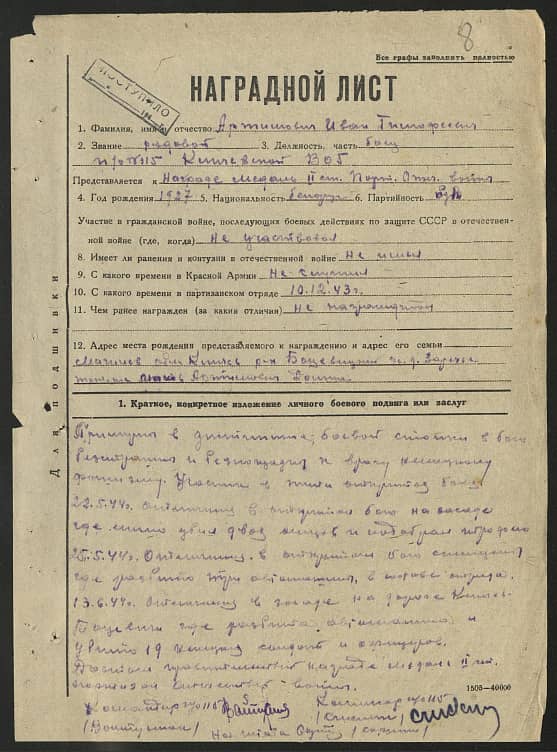 8
Все графы заполнить полностью
ПОСТУПИЛО
НАГРАДНОЙ ЛИСТ
1. Фамилия, имя, отчество Артимович Иван Тимофеевич
2. Звание рядовой 3. Должность, часть боец
п/о №115 Кличевской ВОГ
Представляется к Награде Медаль II ст. Парт. Отеч. войны
4. Год рождения 1927 5. Национальность белорус 6. Партийность б/п
Участие в гражданской войне, последующих боевых действиях по защите СССР в отечествен-
ной войне (где, когда) не участвовал
8. Имеет ли ранения и контузии в отечественной войне не имел
9. С какого времени в Красной Армии не служил
10. С какого времени в партизанском отряде 10.12.43г.
11. Чем ранее награжден (за какие отличия) не награждался
12. Адрес места рождения представляемого к награждению и адрес его семьи
обл. Кличев р-н д. Заречье
Артимович
Для подшивки
1. Краткое, конкретное изложение личного боевого подвига или заслуг
в боевой в бою
и к врагу немецкому
фашизму. Участник открытых боев
22.5.44г. отличился в открытом бою на засаде
где лично убил двух немцев и подобрал
25.5.44г. Отличился в открытом бою
где разбито три автомашины, в составе отряда.
13.6.44г. отличился в засаде на дороге Кличев-
где разбита автомашина и
убито 19 немецких солдат и офицеров.
Достоин правительственной награды медаль II ст.
войны.
1505—40000
Командир п/о 115 Комиссар п/о 115
Начштаба